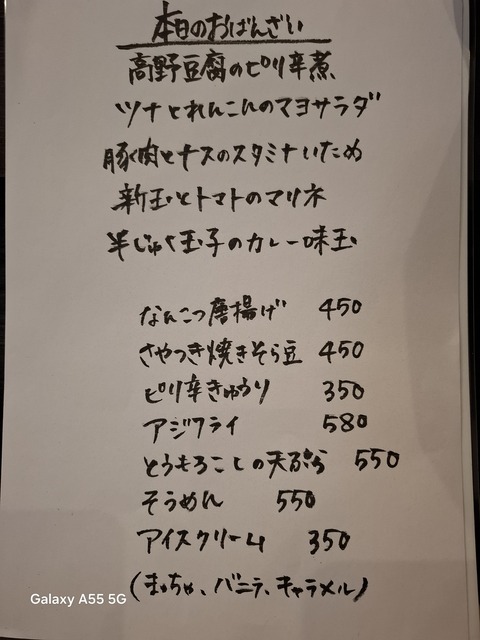 本日のおばんざい
高野豆腐のピリ辛煮
ツナとれんこんのマヨサラダ
豚肉とナスのスタミナいため
新玉とトマトのマリネ
半じゅく玉子のカレー味玉
なんこつ唐揚げ 450
さやつき焼きそら豆 450
ピリ辛きゅうり 350
アジフライ 580
とうもろこしの天ぷら 550
そうめん 550
アイスクリーム 350
(まっちゃ、バニラ、キャラメル)
Galaxy A55 5G